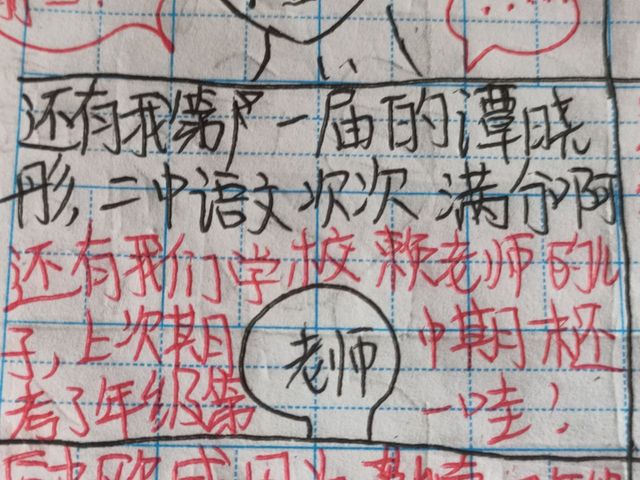 还有我第一届的谭晓
彤,二中语文次次满分啊
还有我们学校赖老师的儿
子,上次期 老师 中期末还
考了年级第 一哇!